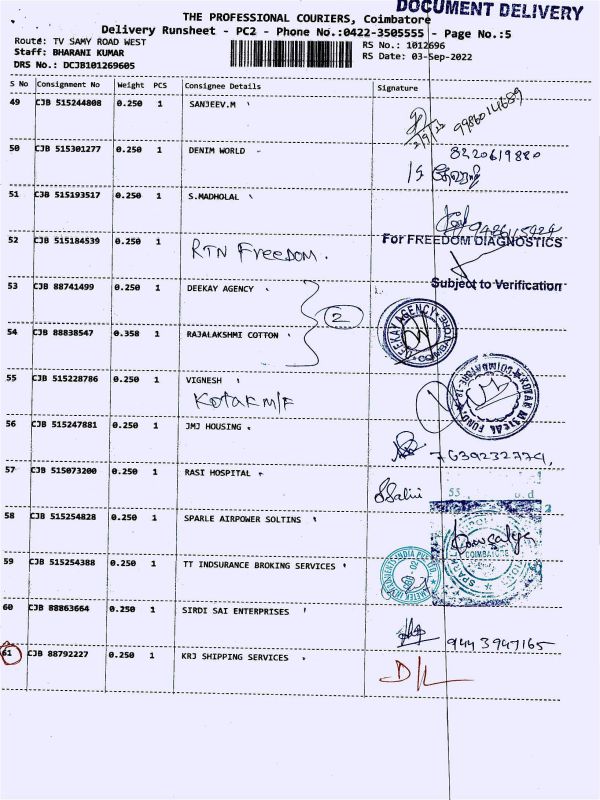 DOCUMENT DELIVERY
THE PROFESSIONAL COURIERS, Coimbatore
Delivery Runsheet - PC2 - Phone No.:0422-3505555 - Page No.:5
Route: TV SAMY ROAD WEST
Staff: BHARANI KUMAR
DRS No.: DCJB101269605
RS No.: 1012696
RS Date: 03-Sep-2022
S No Consignment No Weight PCS Consignee Details Signature
49 CJB 515244808 0.250 1 SANJEEV.M
2/9/22 9986014689
50 CJB 515301277 0.250 1 DENIM WORLD
8220619880
51 CJB 515193517 0.250 1 S.MADHOLAL
52 CJB 515184539 0.250 1 RTN Freedom.
For FREEDOM DIAGNOSTICS
53 CJB 88741499 0.250 1 DEEKAY AGENCY
Subject to Verification
2
54 CJB 88838547 0.358 1 RAJALAKSHMI COTTON
DEEKAY AGENCY
55 CJB 515228786 0.250 1 VIGNESH
Kotak M/F
KOTAK MUTUAL FUND COIMBATORE-18
56 CJB 515247881 0.250 1 JMJ HOUSING
7639232774,
57 CJB 515073200 0.250 1 RASI HOSPITAL
S.Salini
58 CJB 515254828 0.250 1 SPARLE AIRPOWER SOLTINS
COIMBATORE
59 CJB 515254388 0.250 1 TT INDSURANCE BROKING SERVICES
60 CJB 88863664 0.250 1 SIRDI SAI ENTERPRISES
9443947165
61 CJB 88792227 0.250 1 KRJ SHIPPING SERVICES
D/L